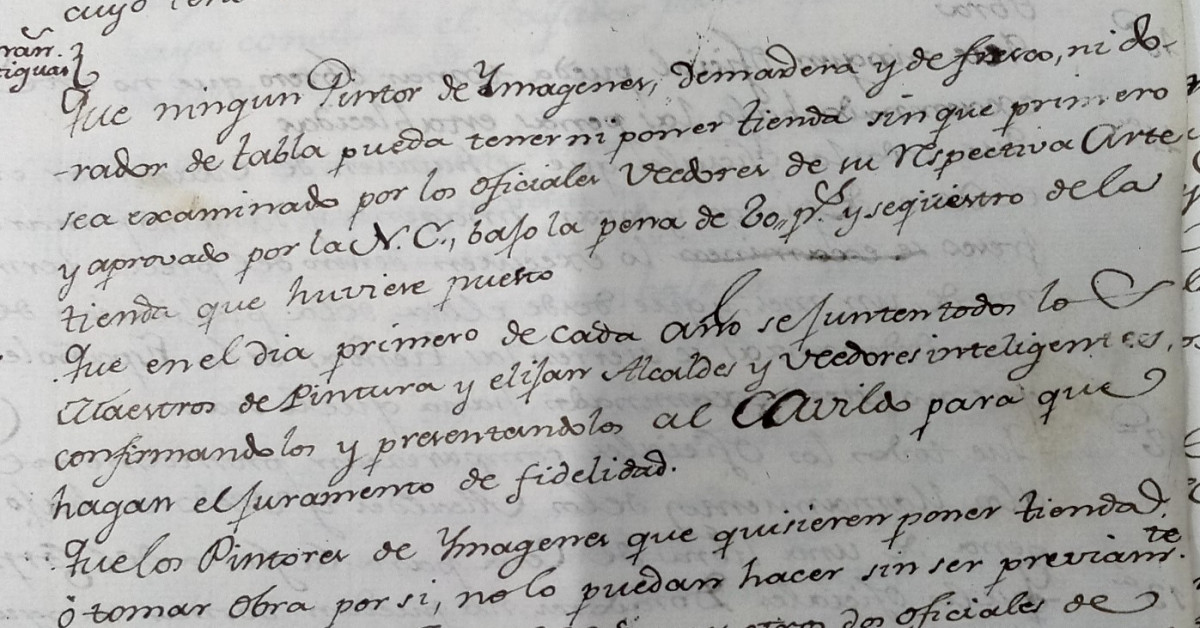 cuyo
rān.
tiguas
Que ningun Pintor de Ymagenes, de madera y de fresco, ni do-
-rador de tabla pueda tener ni poner tienda sin que primero
sea examinado por los oficiales Veedores de su respectiva Arte
y aprovado por la N.C., bajo la pena de 20„ p.s y seqüestro de la
tienda que huviere puesto
Que en el dia primero de cada año se junten todos los
Maestros de Pintura y elijan Alcaldes y Veedores inteligentes,
confirmandolos y presentandolos al Cavildo para que
hagan el juramento de fidelidad.
Que los Pintores de Ymagenes que quisieren poner tienda
ò tomar obra por si, no lo puedan hacer sin ser previam.te
dos oficiales de